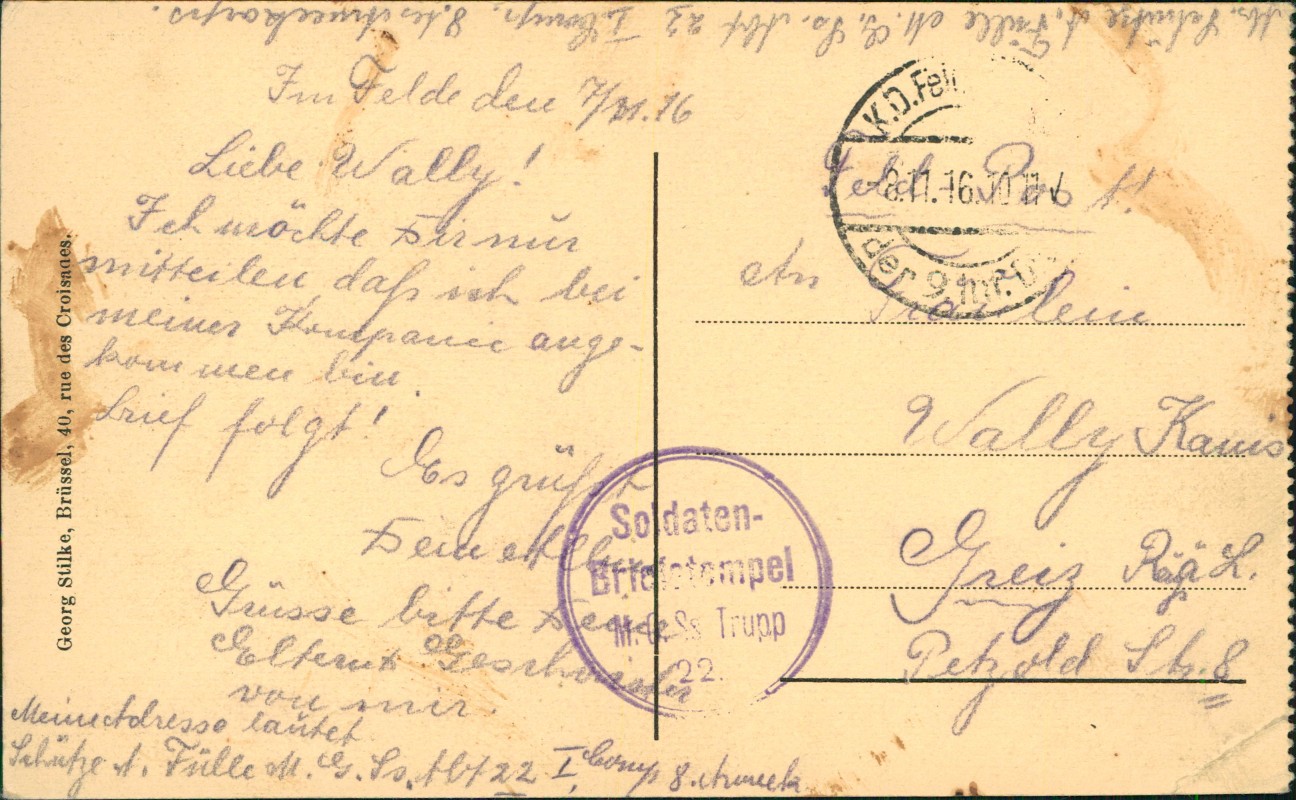 Schütze A. Fülle M. G. Ss. Abt 22 I Comp. 8. tes Armeekorps.
Im Felde den 7/11.16
Liebe Wally!
Ich möchte Dir nur
mitteilen daß ich bei
meiner Kompanie ange-
kommen bin.
Brief folgt!
Es grüßt
Dein
Grüsse bitte Deine
Eltern Geschwister
von mir.
Meine Adresse lautet
Schütze A. Fülle M. G. Ss. Abt 22 I Comp 8. Armeek
Georg Stilke, Brüssel, 40, rue des Croisades.
K.D.Fel
8.11.16.10-11V
der 9.Inf.D
Feld-Post!
An
Fräulein
Wally
Greiz R. ä. L.
Petzold Str. 8
Soldaten-
Briefstempel
M.G.Ss Trupp
22.